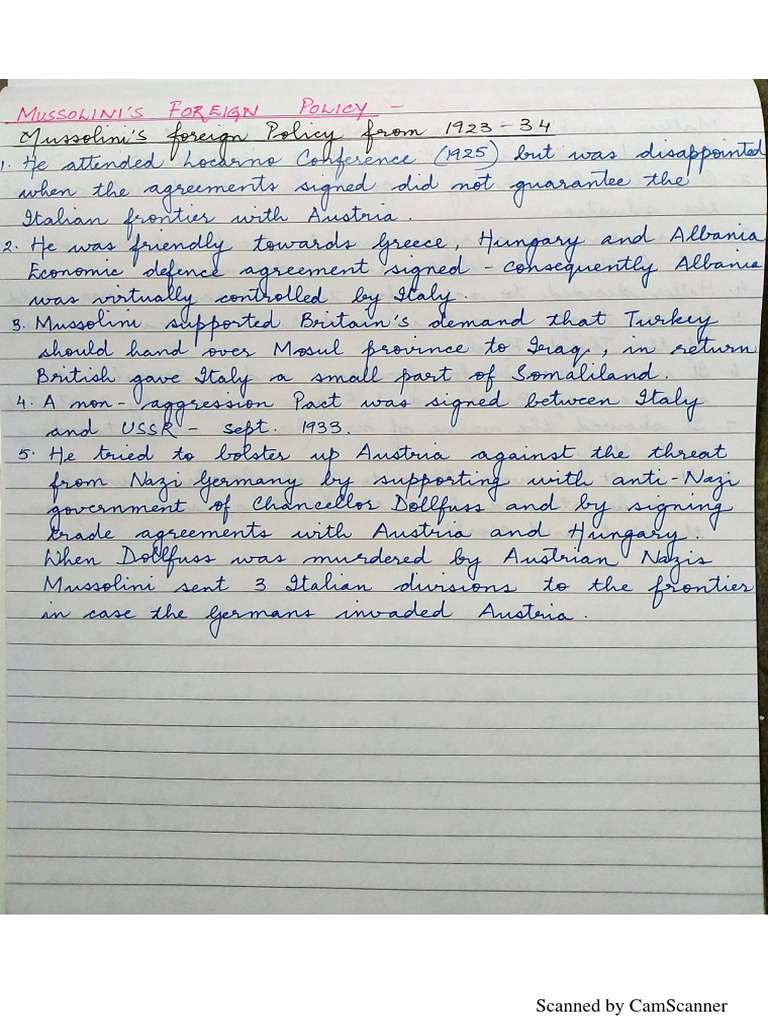 MUSSOLINI'S FOREIGN POLICY -
Mussolini's foreign Policy from 1923-34
1. He attended Locarno Conference (1925) but was disappointed
when the agreements signed did not guarantee the
Italian frontier with Austria.
2. He was friendly towards Greece, Hungary and Albania
Economic defence agreement signed - consequently Albania
was virtually controlled by Italy.
3. Mussolini supported Britain's demand that Turkey
should hand over Mosul province to Iraq, in return
British gave Italy a small part of Somaliland.
4. A non-aggression Pact was signed between Italy
and USSR - Sept. 1933.
5. He tried to bolster up Austria against the threat
from Nazi Germany by supporting with anti-Nazi
government of Chancellor Dollfuss and by signing
trade agreements with Austria and Hungary.
When Dollfuss was murdered by Austrian Nazis
Mussolini sent 3 Italian divisions to the frontier
in case the Germans invaded Austria.
Scanned by CamScanner